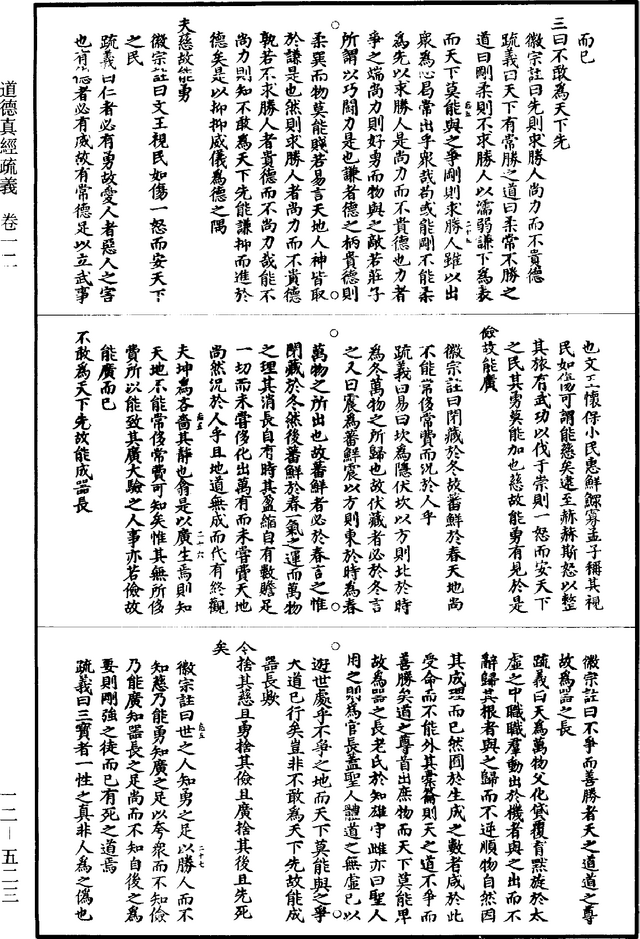 而已
三曰不敢為天下先
徽宗註曰先則求勝人尚力而不貴德
疏義曰天下有常勝之道曰柔常不勝之
道曰剛柔則不求勝人以濡弱謙下為表
而天下莫能與之爭剛則求勝人雖以出
衆為心曷常出乎衆哉苟或能剛不能柔
為先以求勝人是尚力而不貴德也力者
爭之端尚力則好勇而物與之敵若莊子
所謂以巧鬪力是也謙者德之柄貴德則
柔巽而物莫能賤若易言天地人神皆取
於謙是也然則求勝人者尚力而不貴德
孰若不求勝人者貴德而不尚力哉能不
尚力則知不敢為天下先能謙抑而進於
德矣是以抑抑威儀為德之隅
夫慈故能勇
徽宗註曰文王視民如傷一怒而安天下
之民
疏義曰仁者必有勇故愛人者惡人之害
也有德者必有威故有常德足以立武事
也文王懷保小民惠鮮鰥寡孟子稱其視
民如傷可謂能慈矣逮至赫赫斯怒以整
其旅有武功以伐于崇則一怒而安天下
之民其勇莫能加也慈故能勇有見於是
儉故能廣
徽宗註曰閉藏於冬故蕃鮮於春天地尚
不能常侈常費而況於人乎
疏義曰易曰坎為隱伏坎以方則北於時
為冬萬物之所歸也故伏藏者必於冬言
之又曰震為蕃鮮震以方則東於時為春
萬物之所出也故蕃鮮者必於春言之惟
閉藏於冬然後蕃鮮於春一氣之運而萬物
之理其消長自有時其盈縮自有數贍足
一切而未嘗侈化出萬有而未嘗費天地
尚然況於人乎且地道無成而代有終觀
夫坤為吝嗇其靜也翕是以廣生焉則知
天地不能常侈常費可知矣惟其無所侈
費所以能致其廣大驗之人事亦若儉故
能廣而已
不敢為天下先故能成器長
徽宗註曰不爭而善勝者天之道道之尊
故為器之長
疏義曰天為萬物父化貸覆育黙旋於太
虛之中職職羣動出於機者與之出而不
辭歸其根者與之歸而不逆順物自然因
其成理而已然囿於生成之數者咸於此
受命而不能外其橐籥則天之道不爭而
善勝矣道之尊首出庶物而天下莫能卑
故為器之長老氏於知雄守雌亦曰聖人
用之則為官長蓋聖人體道之無虛已以
遊世處乎不爭之地而天下莫能與之爭
大道已行矣豈非不敢為天下先故能成
器長歟
今捨其慈且勇捨其儉且廣捨其後且先死
矣
徽宗註曰世之人知勇之足以勝人而不
知慈乃能勇知廣之足以夸衆而不知儉
乃能廣知器長之足尚而不知自後之為
要則剛強之徒而已有死之道焉
疏義曰三寶者一性之真非人為之偽也
道德真經疏義 卷一二
一二－五二三